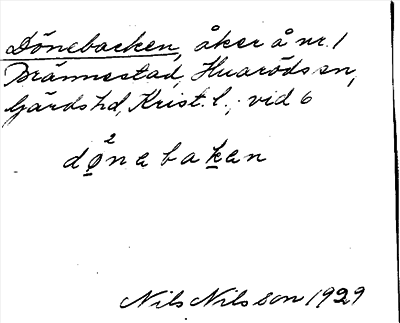 Dönebacken, åker å nr. 1
Brännestad, Huaröds sn,
Gärds hd, Krist. l., vid 6
2
dønabakan
Nils Nilsson 1929